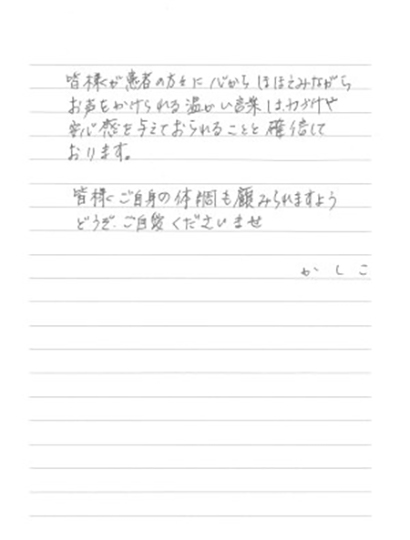 皆様が患者の方々に心からほほえみながら
お声をかけられる温かい言葉は力づけや
安心感を与えておられることと確信して
おります。
皆様ご自身の体調も顧みられますよう
どうぞ、ご自愛くださいませ
かしこ